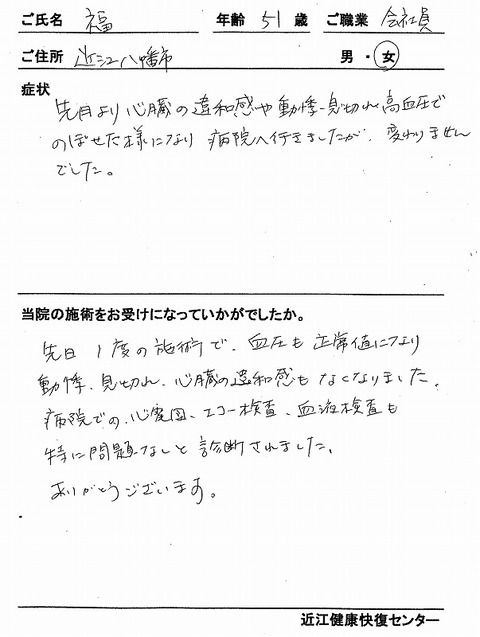 ご氏名 福 年齢 51 歳 ご職業 会社員
ご住所 近江八幡市 男・女
症状
先月より心臓の違和感や動悸、息切れ、高血圧で
のぼせた様になり 病院へ行きましたが、変わりません
でした。
当院の施術をお受けになっていかがでしたか。
先日 1度の施術で、血圧も正常値になり
動悸、息切れ、心臓の違和感もなくなりました。
病院での、心電図、エコー検査、血液検査も
特に問題なしと診断されました。
ありがとうございます。
近江健康快復センター